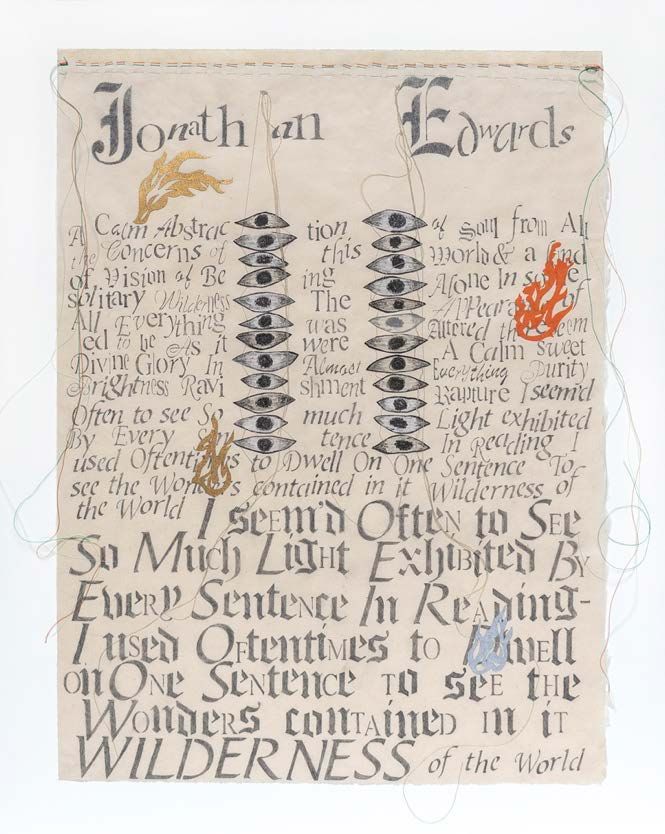 Jonathan Edwards
A Calm Abstrac tion of Soul from All
the Concerns of this World & a kind
of Vision of Be ing Alone In so
solitary Wilderness The Appear of
All Everything was Altered there seem
ed to be As it were A Calm Sweet
Divine Glory In Almost Everything Purity
Brightness Ravi shment Rapture I seem'd
Often to see So much Light exhibited
By Every Sen tence In Reading I
used Oftentimes to Dwell On One Sentence To
see the Wonders contained in it Wilderness of
the World
I seem'd Often to See
So Much Light Exhibited By
Every Sentence In Reading-
I used Oftentimes to Dwell
on One Sentence to see the
Wonders contained in it
WILDERNESS of the World